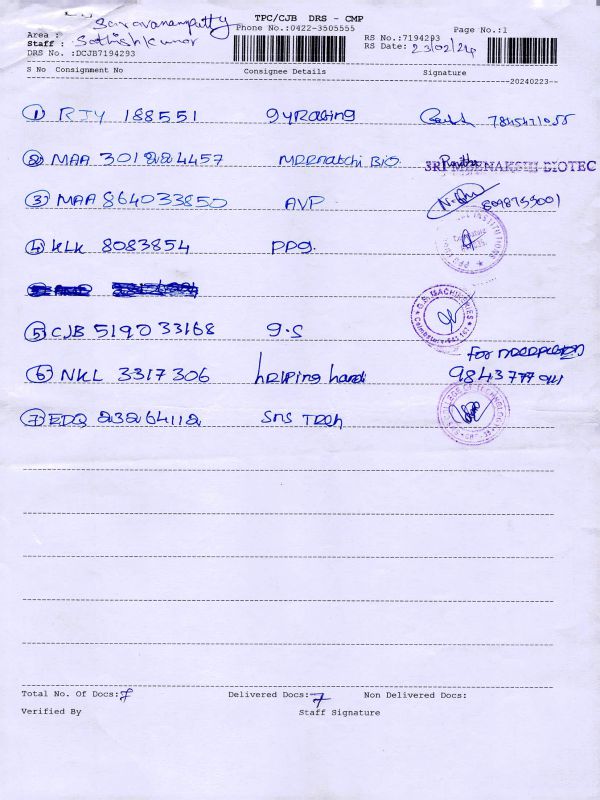 TPC/CJB DRS - CMP
Saravanampatty
Phone No.:0422-3505555
Page No.:1
Area :
RS No.:7194293
Staff : Sathishkumar
RS Date: 23/02/24
DRS No. :DCJB7194293
S No Consignment No Consignee Details Signature
20240223
1 RJY 188551 gyRacing 7845471055
2 MAA 301224457 Meenatchi Bio. SRI MEENAKSHI BIOTEC
3 MAA 864033850 AVP 8098755001
4 KLK 8083854 PPG.
5 CJB 519033168 G.S
G.S. MACHINERIES
For
6 NKL 3317306 helping hand 9843777041
7 EDQ 23264112 SNS Tech
Total No. Of Docs: 7 Delivered Docs: 7 Non Delivered Docs:
Verified By Staff Signature